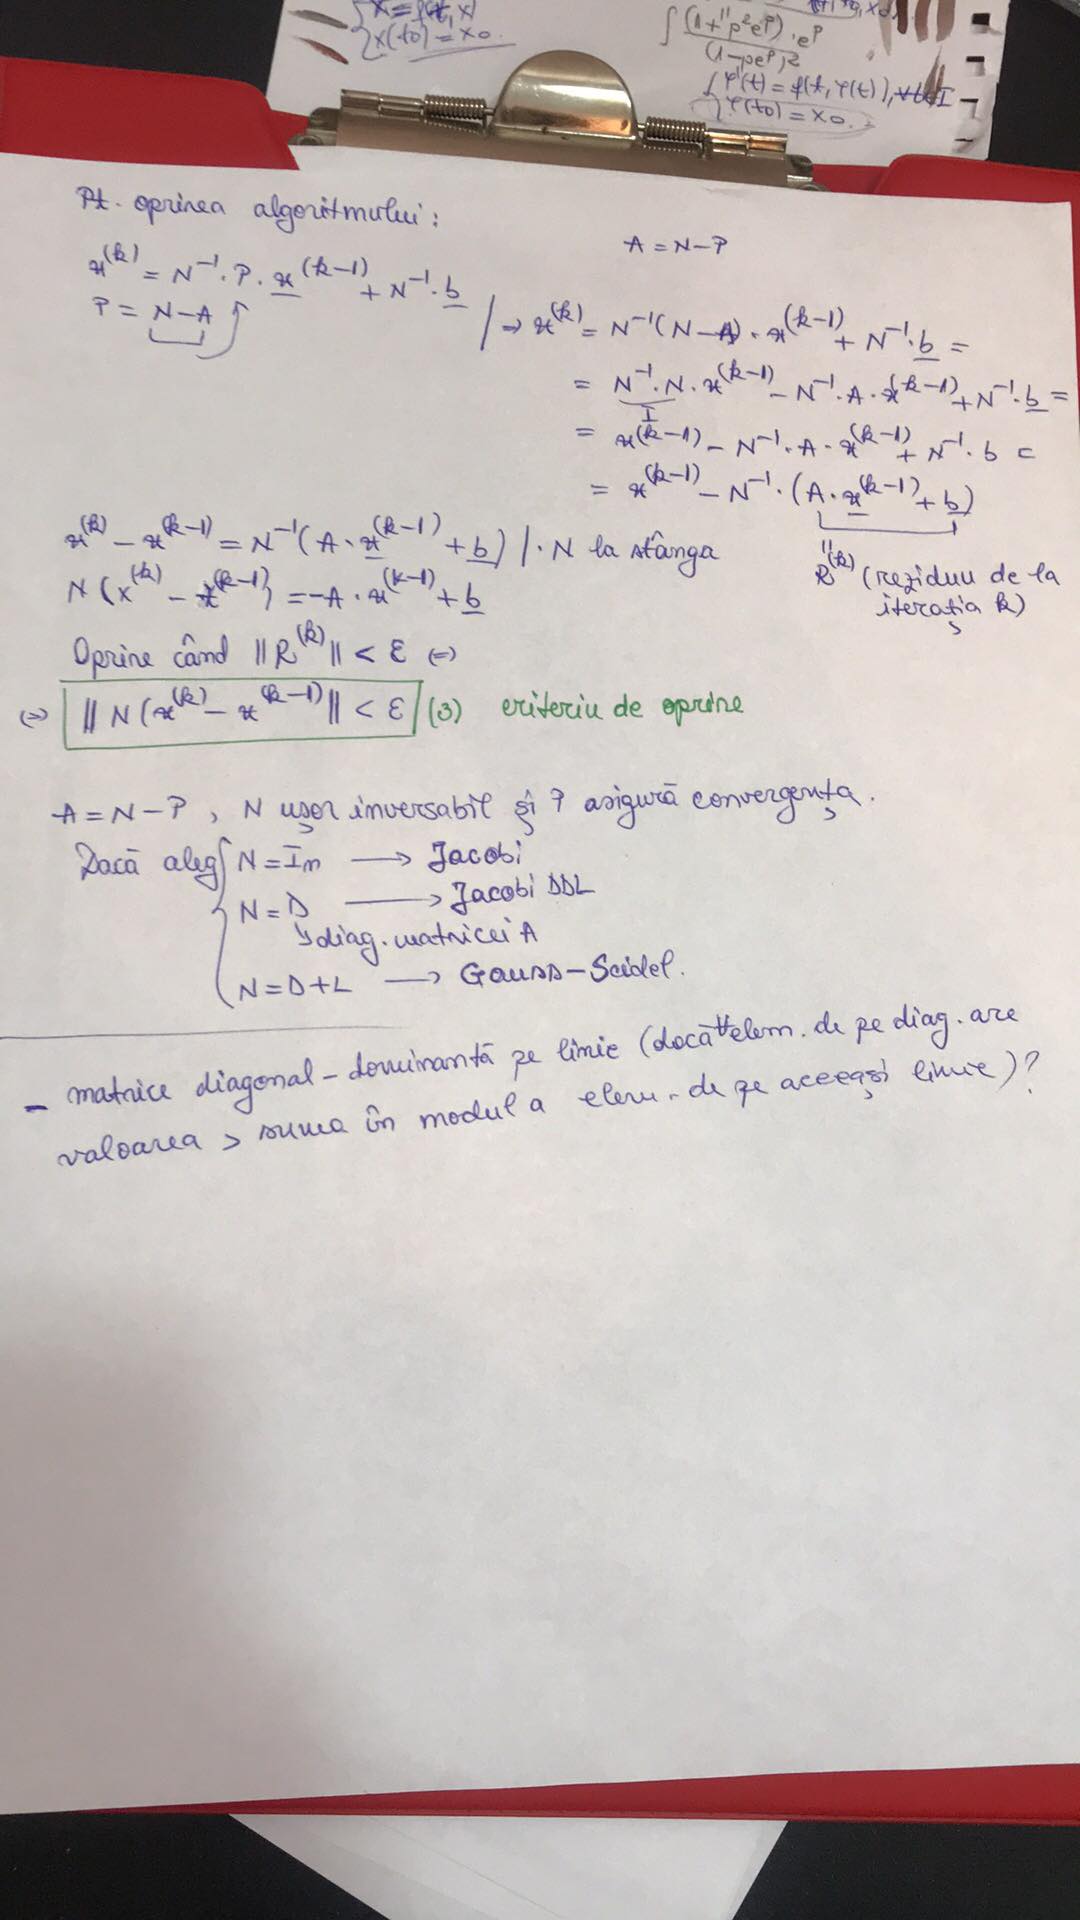 x = f(t, x)
x(t0) = x0.
∫ (1+p²e^p)·e^p
(1-pe^p)²
φ'(t) = f(t, φ(t)), ∀t∈I
φ(t0) = x0.
Pt. oprirea algoritmului:
A = N-P
x^(k) = N^-1·P·x^(k-1) + N^-1·b
P = N-A
/⇒ x^(k) = N^-1(N-A)·x^(k-1) + N^-1·b =
= N^-1·N·x^(k-1) - N^-1·A·x^(k-1) + N^-1·b =
I
= x^(k-1) - N^-1·A·x^(k-1) + N^-1·b =
= x^(k-1) - N^-1·(A·x^(k-1) + b)
x^(k) - x^(k-1) = N^-1(A·x^(k-1) + b) /·N la stânga
"
R^(k) (reziduu de la
iterația k)
N(x^(k) - x^(k-1)) = -A·x^(k-1) + b
Oprire când ||R^(k)|| < ε ⇔
⇔ || N(x^(k) - x^(k-1)|| < ε (3) criteriu de oprire
A = N-P , N ușor inversabil și P asigură convergența.
Dacă aleg { N = In → Jacobi
N = D → Jacobi DDL
↳ diag. matricei A
N = D+L → Gauss-Seidel.
- matrice diagonal-dominantă pe linie (dacă ∀ elem. de pe diag. are
valoarea > suma în modul a elem. de pe aceeași linie)?